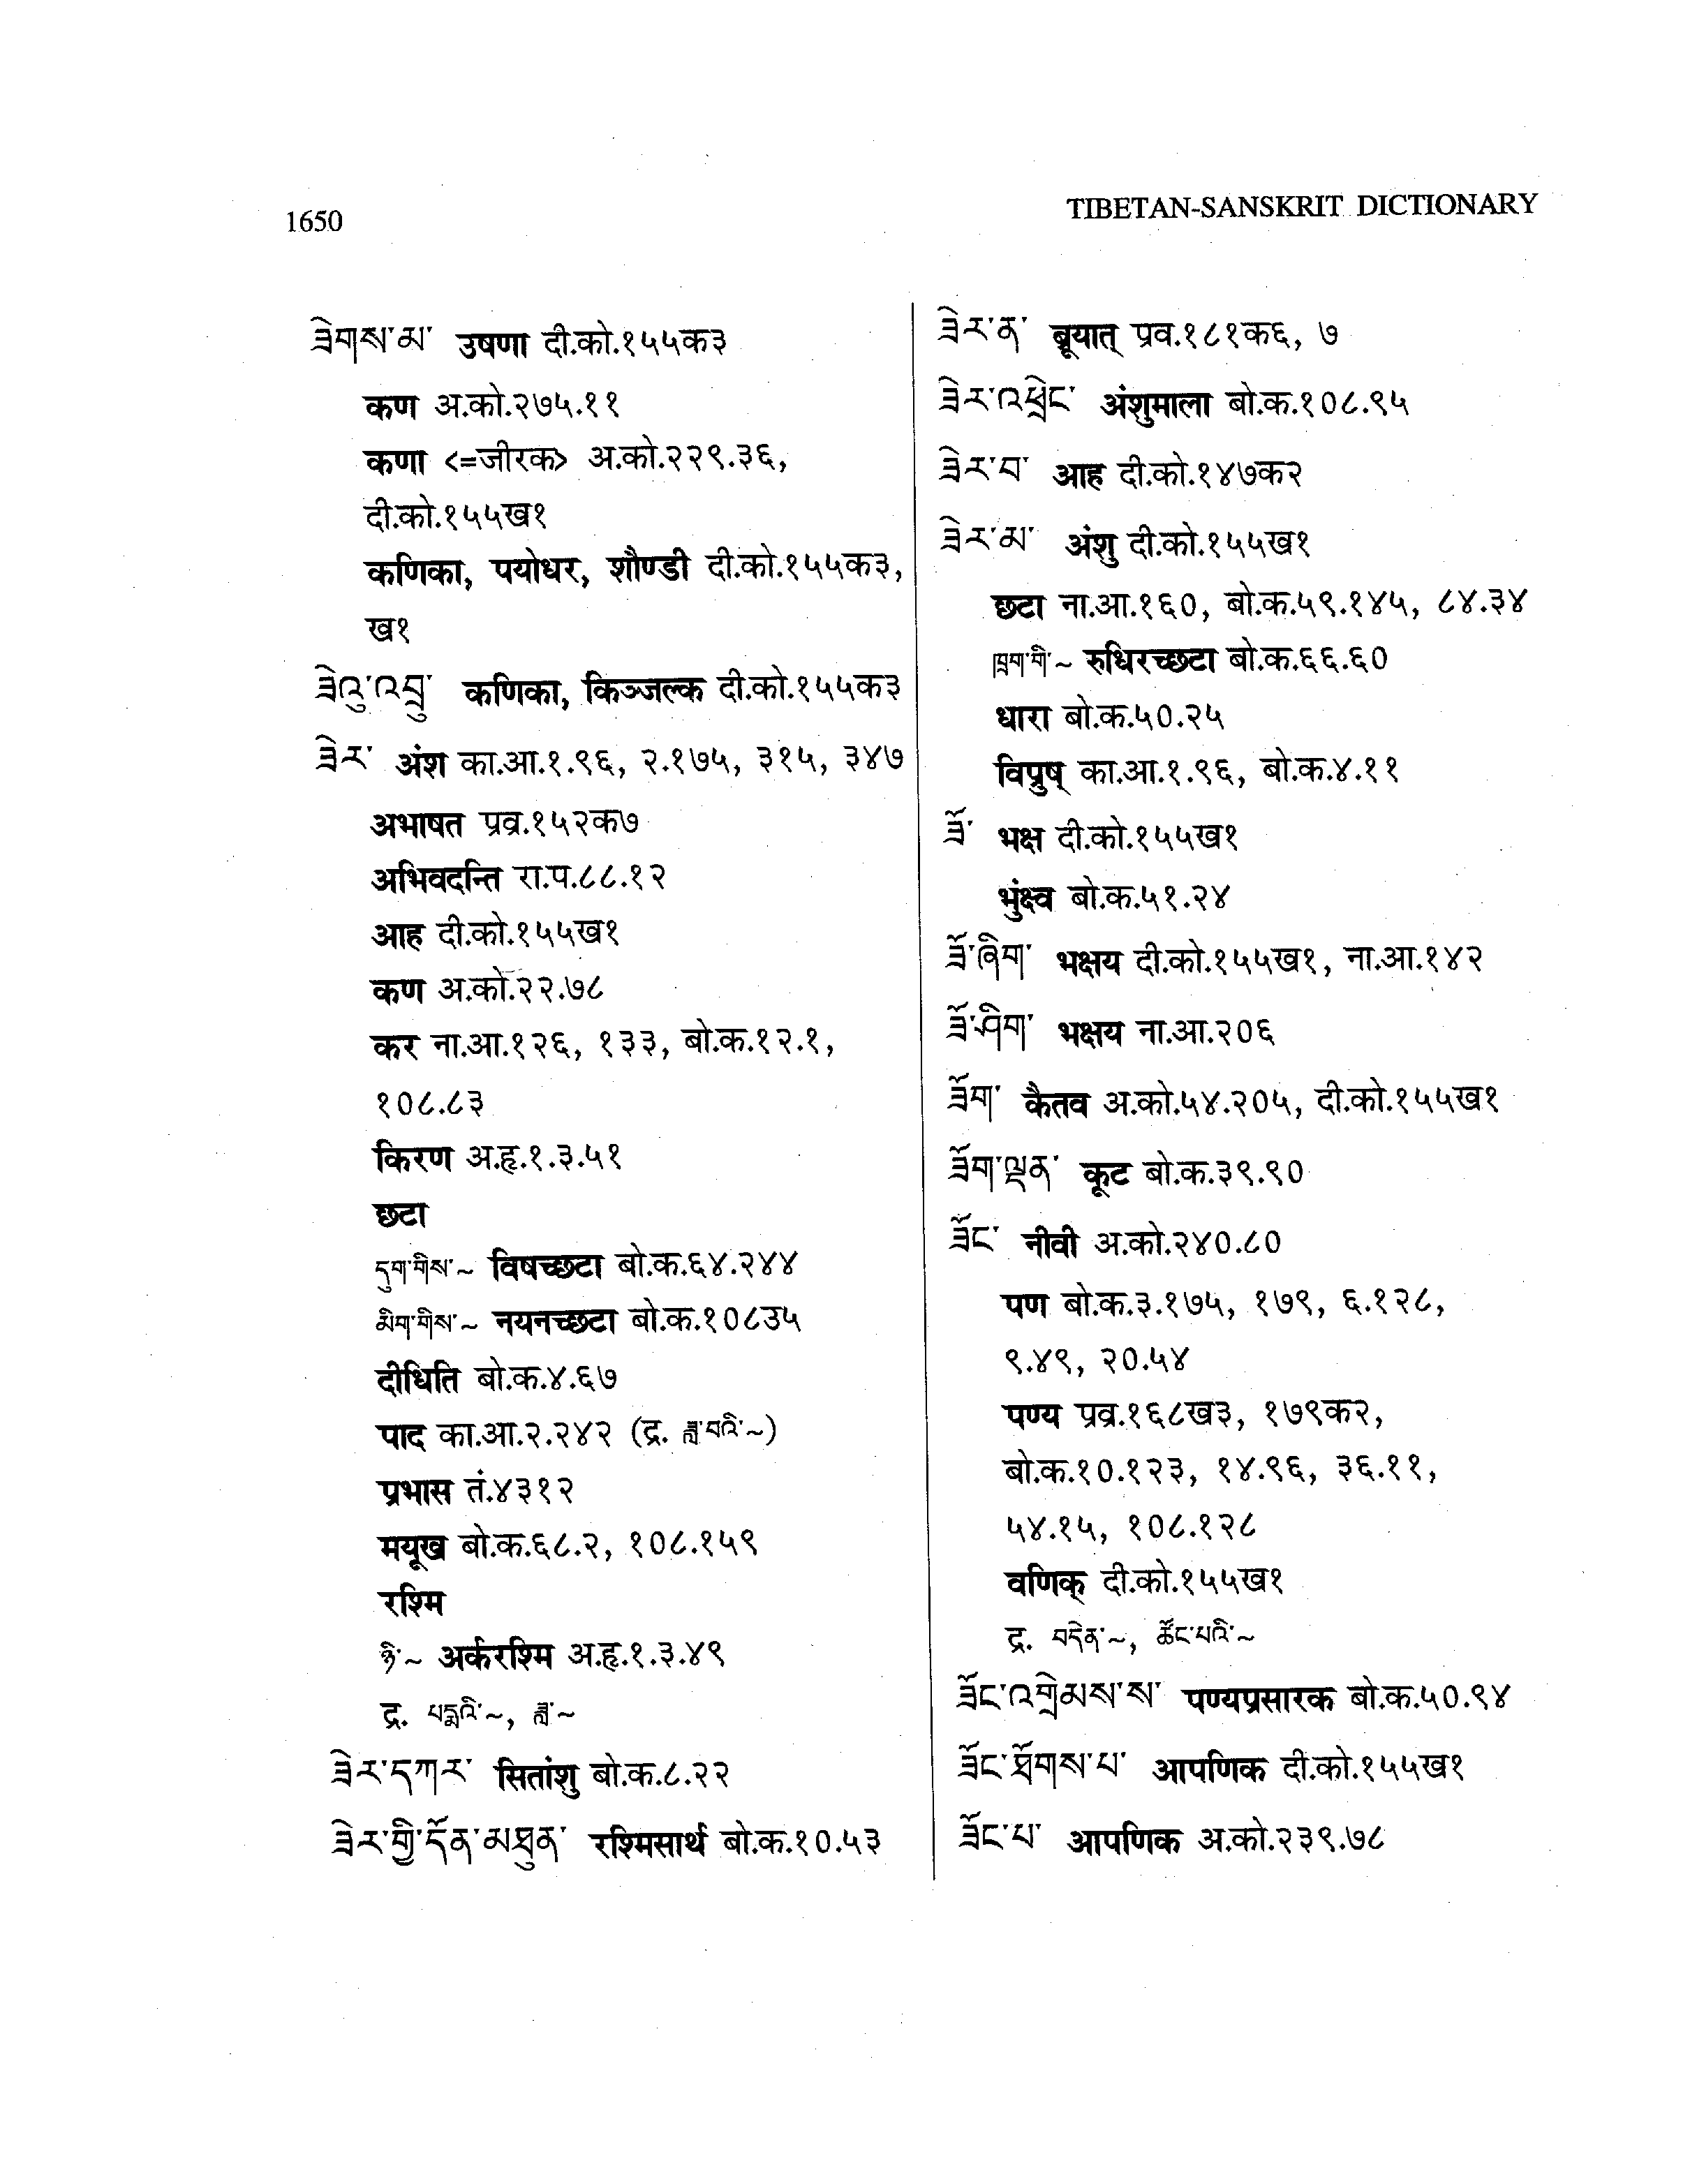 1650
TIBETAN-SANSKRIT DICTIONARY
ཟེགས་མ་ उषणा दी.को.१५५क३
कण अ.को.२७५.११
कणा <=जीरक> अ.को.२२९.३६,
दी.को.१५५ख१
कणिका, पयोधर, शौण्डी दी.को.१५५क३,
ख१
ཟེའུ་འབྲུ་ कणिका, किञ्जल्क दी.को.१५५क३
ཟེར་ अंश का.आ.१.९६, २.१७५, ३१५, ३४७
अभाषत प्रव्र.१५२क७
अभिवदन्ति रा.प.८८.१२
आह दी.को.१५५ख१
कण अ.को.२२.७८
कर ना.आ.१२६, १३३, बो.क.१२.१,
१०८.८३
किरण अ.हृ.१.३.५१
छटा
དུག་གིས་~ विषच्छटा बो.क.६४.२४४
མིག་གིས་~ नयनच्छटा बो.क.१०८३५
दीधिति बो.क.४.६७
पाद का.आ.२.२४२ (द्र. ཟླ་བའི་~)
प्रभास तं.४३१२
मयूख बो.क.६८.२, १०८.१५९
रश्मि
ཉི་~ अर्करश्मि अ.हृ.१.३.४९
द्र. པདྨའི་~, ཟླ་~
ཟེར་དཀར་ सितांशु बो.क.८.२२
ཟེར་གྱི་དོན་མཐུན་ रश्मिसार्थ बो.क.१०.५३
ཟེར་ན་ ब्रूयात् प्रव.१८१क६, ७
ཟེར་འཕྲེང་ अंशुमाला बो.क.१०८.९५
ཟེར་བ་ आह दी.को.१४७क२
ཟེར་མ་ अंशु दी.को.१५५ख१
छटा ना.आ.१६०, बो.क.५९.१४५, ८४.३४
ཁྲག་གི་~ रुधिरच्छटा बो.क.६६.६०
धारा बो.क.५०.२५
विप्रुष् का.आ.१.९६, बो.क.४.११
ཟོ་ भक्ष दी.को.१५५ख१
भुंक्ष्व बो.क.५१.२४
ཟོ་ཞིག་ भक्षय दी.को.१५५ख१, ना.आ.१४२
ཟོ་ཤིག་ भक्षय ना.आ.२०६
ཟོག་ कैतव अ.को.५४.२०५, दी.को.१५५ख१
ཟོག་ལྡན་ कूट बो.क.३९.९०
ཟོང་ नीवी अ.को.२४०.८०
पण बो.क.३.१७५, १७९, ६.१२८,
९.४९, २०.५४
पण्य प्रव्र.१६८ख३, १७९क२,
बो.क.१०.१२३, १४.९६, ३६.११,
५४.१५, १०८.१२८
वणिक् दी.को.१५५ख१
द्र. བདེན་~, ཚོང་པའི་~
ཟོང་འགྲེམས་ས་ पण्यप्रसारक बो.क.५०.९४
ཟོང་ཐོགས་པ་ आपणिक दी.को.१५५ख१
ཟོང་པ་ आपणिक अ.को.२३९.७८